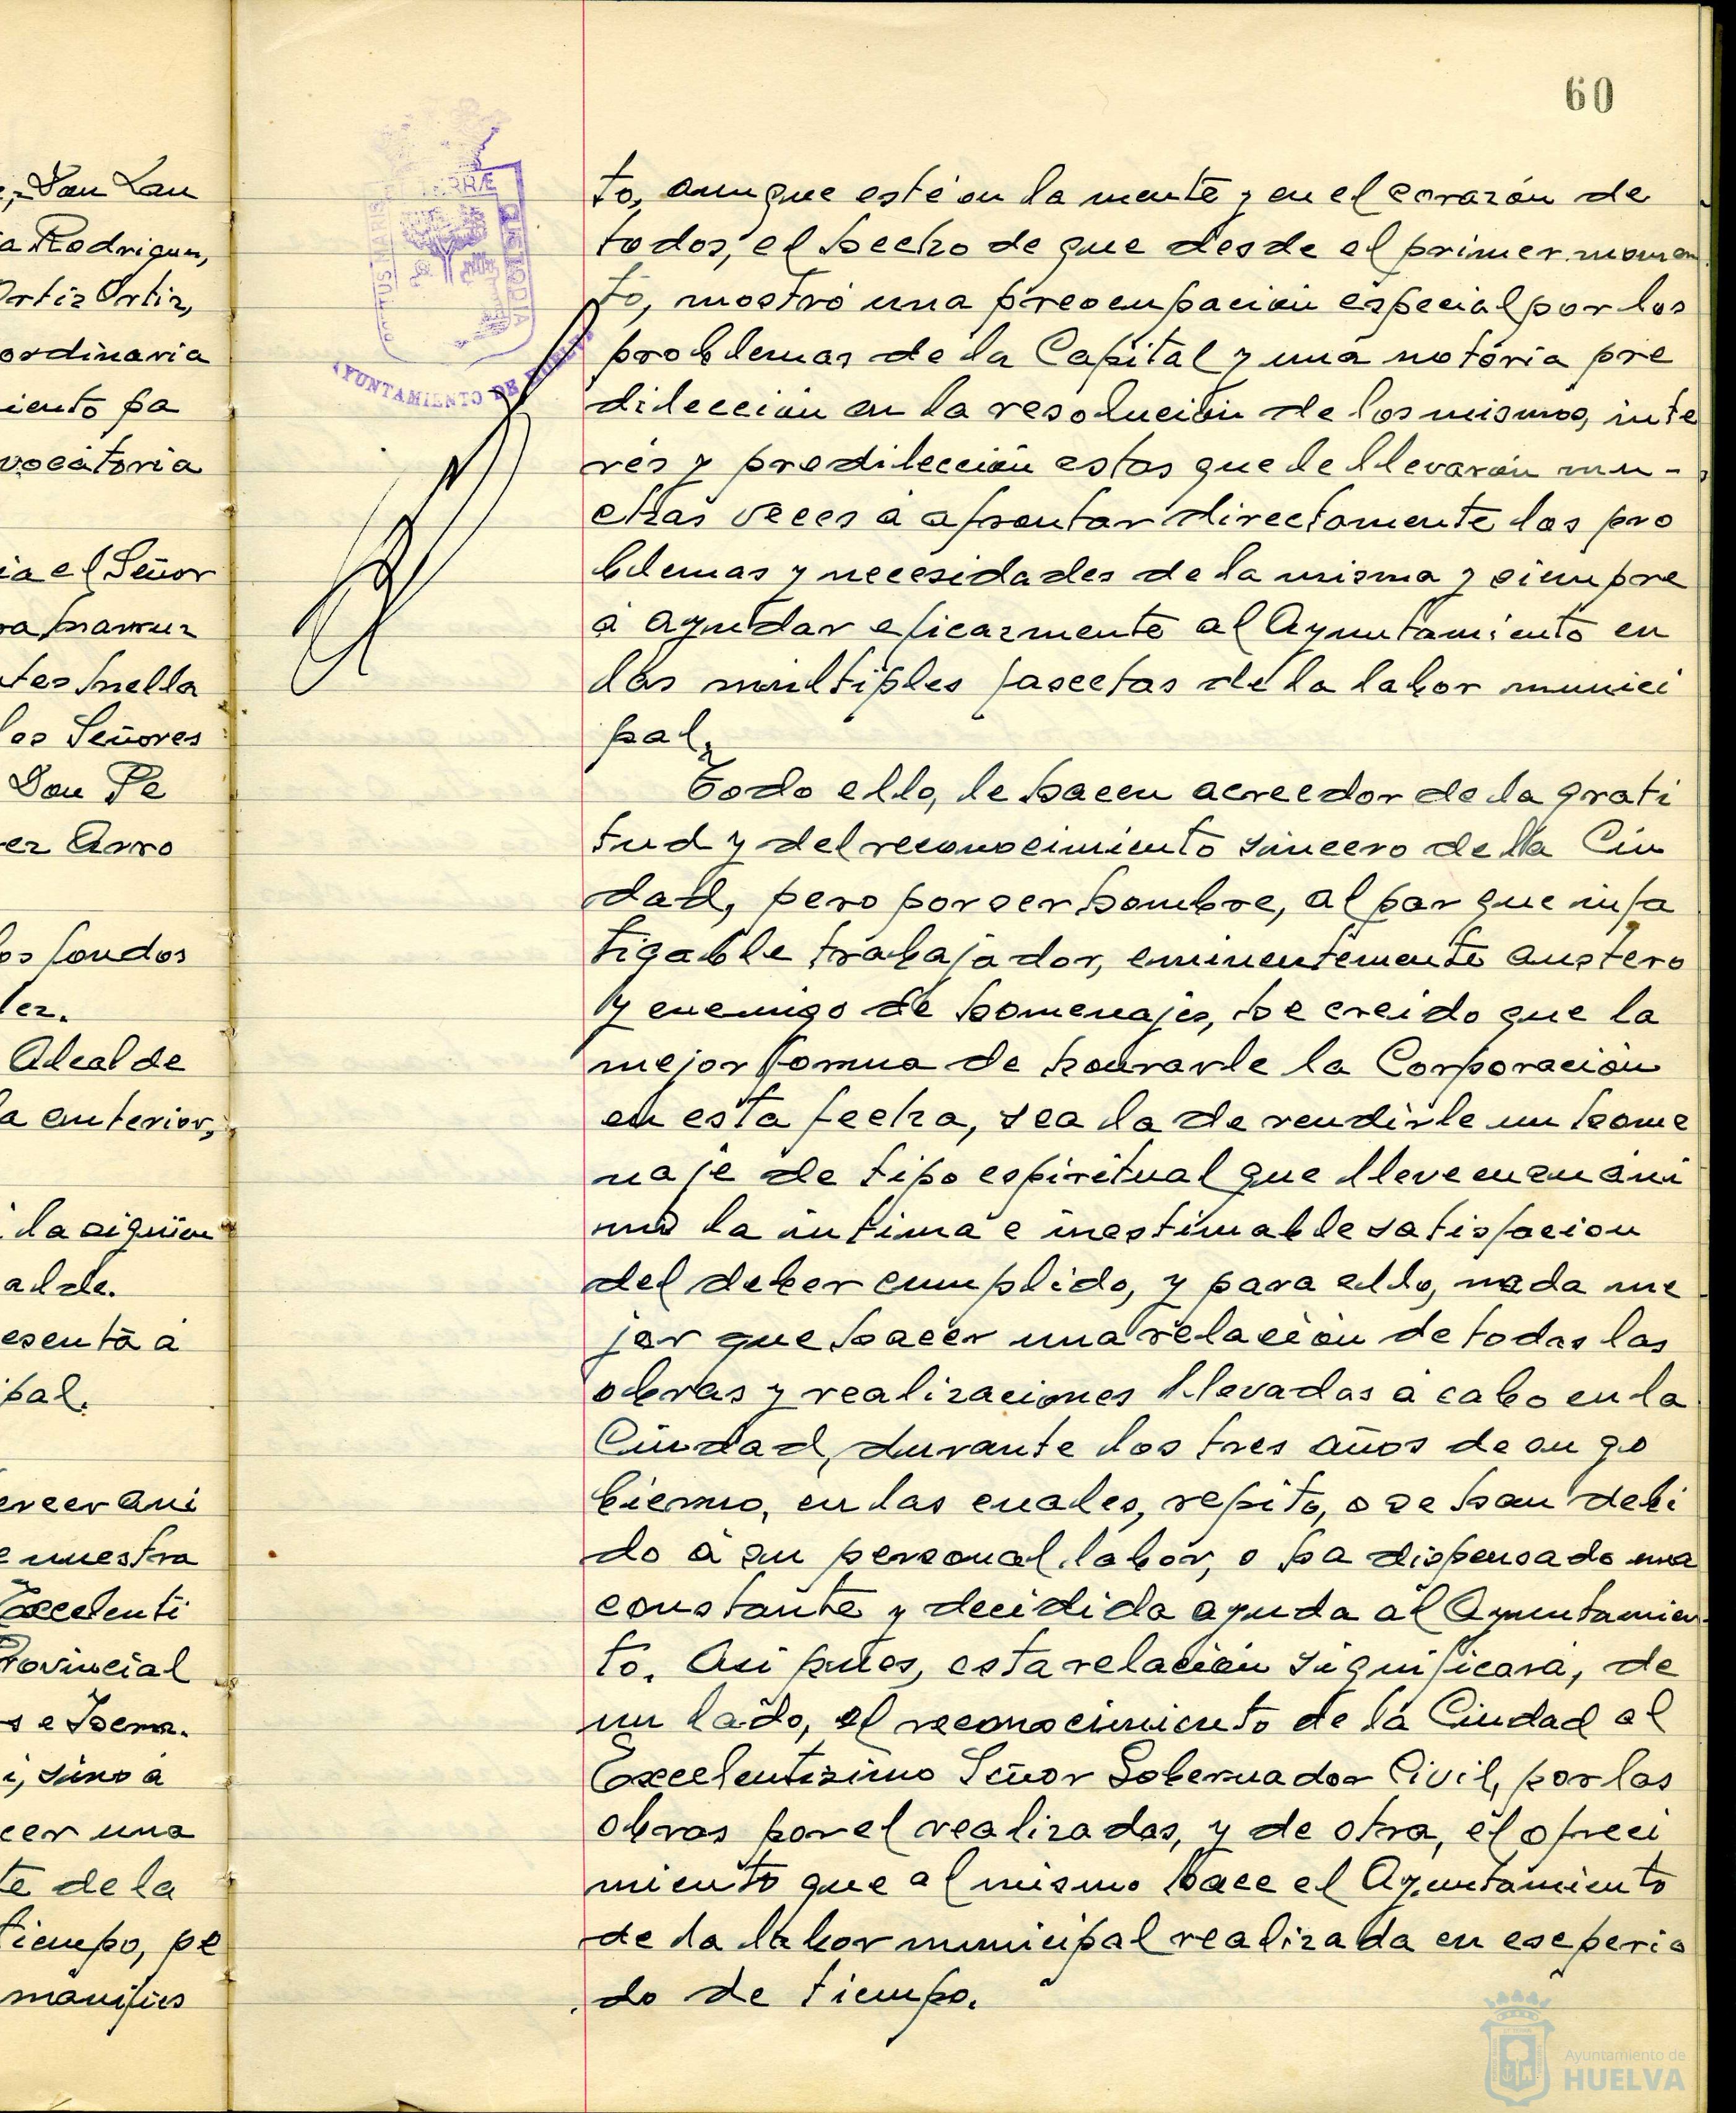 60
e, Don Lau
a Rodriguez,
Ortiz Ortiz,
ordinaria
iento pa
vocatoria
ia el Señor
tes Mella
los Señores
Don Pe
er Arro
os fondos
lez.
Alcalde
a anterior,
la siguien
alde.
esenta á
ipal.
ercer Ani
e nuestra
Excelenti
Provincial
i, sino á
cer una
te de la
tiempo, pe
manifies
PORTUS MARIS ET TERRÆ CUSTODIA
AYUNTAMIENTO DE HUELVA
to, aunque esté en la mente y en el corazón de
todos, el hecho de que desde el primer momen
to, mostró una preocupación especial por los
problemas de la Capital y una notoria pre
dilección en la resolución de los mismos, inte
rés y predilección estos que le llevarón mu-
chas veces á afrontar directamente los pro
blemas y necesidades de la misma y siempre
á ayudar eficazmente al Ayuntamiento en
las multiples fascetas de la labor munici
pal.
Todo ello, le hacen acreedor de la grati
tud y del reconocimiento sincero de la Ciu
dad, pero por ser hombre, al par que infa
tigable trabajador, eminentemente austero
y enemigo de homenajes, he creido que la
mejor forma de honrarle la Corporación
en esta fecha, sea la de rendirle un home
naje de tipo espiritual que lleve en su áni
mo la intima e inestimable satisfacion
del deber cumplido, y para ello, nada me
jor que hacer una relación de todas las
obras y realizaciones llevadas á cabo en la
Ciudad, durante los tres años de su go
bierno, en las cuales, repito, o se han debi
do á su personal labor, o ha dispensado una
constante y decidida ayuda al Ayuntamien
to. Asi pues, esta relación significará, de
un lado, el reconocimiento de la Ciudad al
Excelentisimo Señor Gobernador Civil, por las
obras por el realizadas, y de otra, el ofreci
miento que al mismo hace el Ayuntamiento
de la labor municipal realizada en ese perio
do de tiempo.
Ayuntamiento de
HUELVA